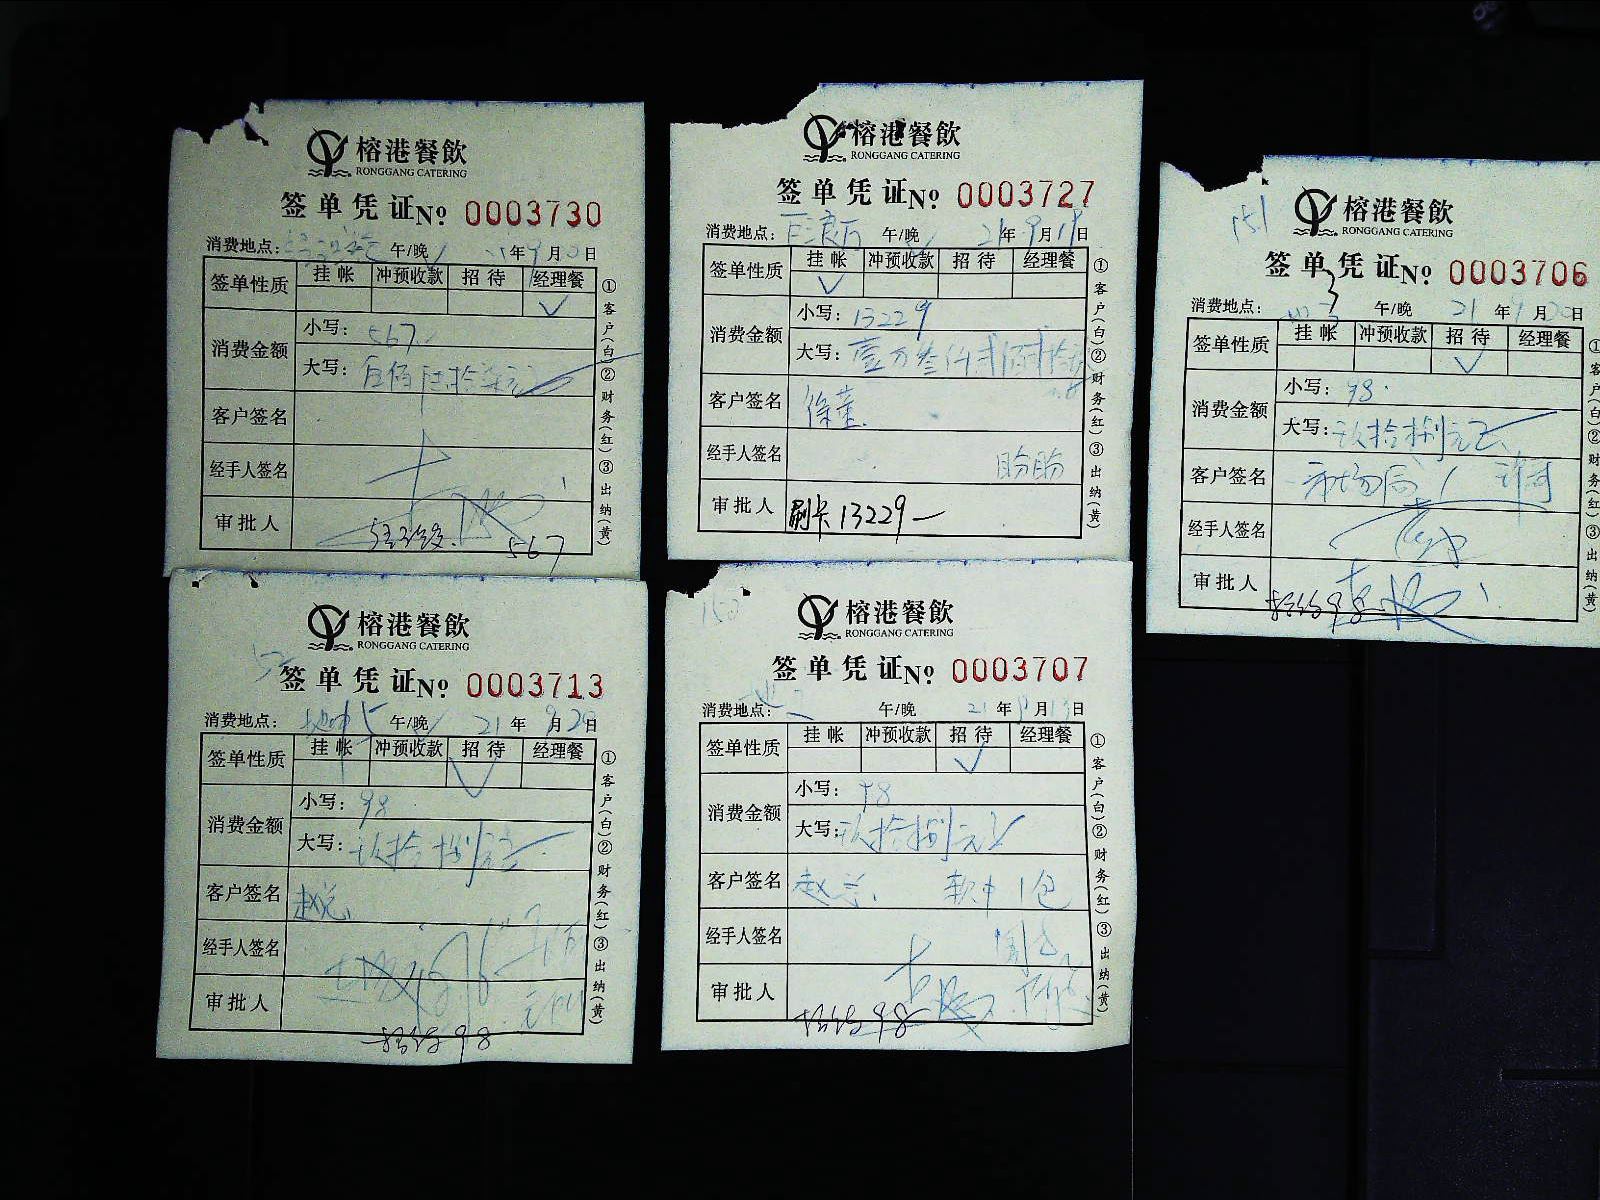 榕港餐飲
RONGGANG CATERING
签单凭证 № 0003730
消费地点: 午/晚 年9月 日
签单性质 挂帐 冲预收款 招待 经理餐
消费金额 小写: 567
大写: 伍佰陆拾柒元
客户签名
经手人签名
审批人
567
①客户(白)②财务(红)③出纳(黄)
榕港餐飲
RONGGANG CATERING
签单凭证 № 0003727
消费地点: 午/晚 21年9月 日
签单性质 挂帐 冲预收款 招待 经理餐
消费金额 小写: 13229
大写: 壹万叁仟贰佰贰拾
客户签名 徐董
经手人签名 盼盼
审批人 刷卡13229
①客户(白)②财务(红)③出纳(黄)
151
榕港餐飲
RONGGANG CATERING
签单凭证 № 0003706
消费地点: 午/晚 21年9月 日
签单性质 挂帐 冲预收款 招待 经理餐
消费金额 小写: 98
大写: 玖拾捌元
客户签名 市场
经手人签名
审批人
招待98
①客户(白)②财务(红)③出纳(黄)
榕港餐飲
RONGGANG CATERING
签单凭证 № 0003713
消费地点: 午/晚 21年9月 日
签单性质 挂帐 冲预收款 招待 经理餐
消费金额 小写: 98
大写: 玖拾捌元
客户签名 赵总
经手人签名
审批人
招待98
①客户(白)②财务(红)③出纳(黄)
榕港餐飲
RONGGANG CATERING
签单凭证 № 0003707
消费地点: 午/晚 21年9月 日
签单性质 挂帐 冲预收款 招待 经理餐
消费金额 小写: 98
大写: 玖拾捌元
客户签名 赵总 软中1包
经手人签名
审批人
招待98
①客户(白)②财务(红)③出纳(黄)